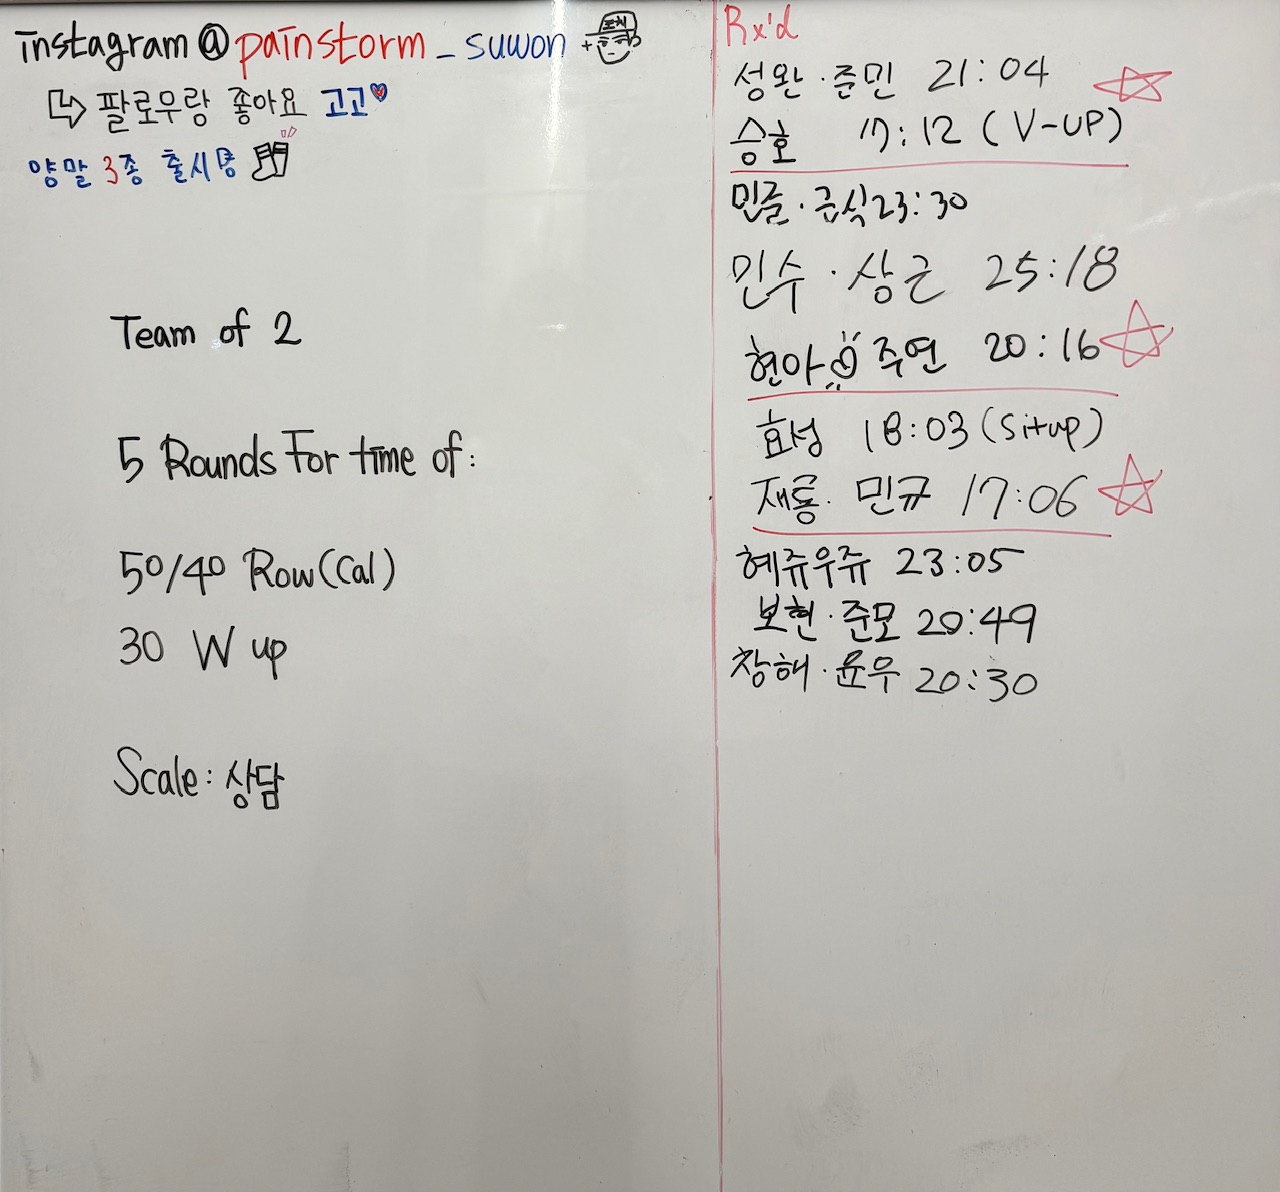 instagram@painstorm_suwon
팔로우랑 좋아요 고고
양말 3종 출시
Team of 2
5 Rounds For time of:
50/40 Row(Cal)
30 W up
Scale: 상담
Rx'd
성완·준민 21:04
승호 17:12 (V-UP)
민줄·금식 23:30
민수·상근 25:18
현아 주연 20:16
효성 18:03 (Situp)
재룡·민규 17:06
혜쥬우쥬 23:05
보현·준모 20:49
창해·윤우 20:30